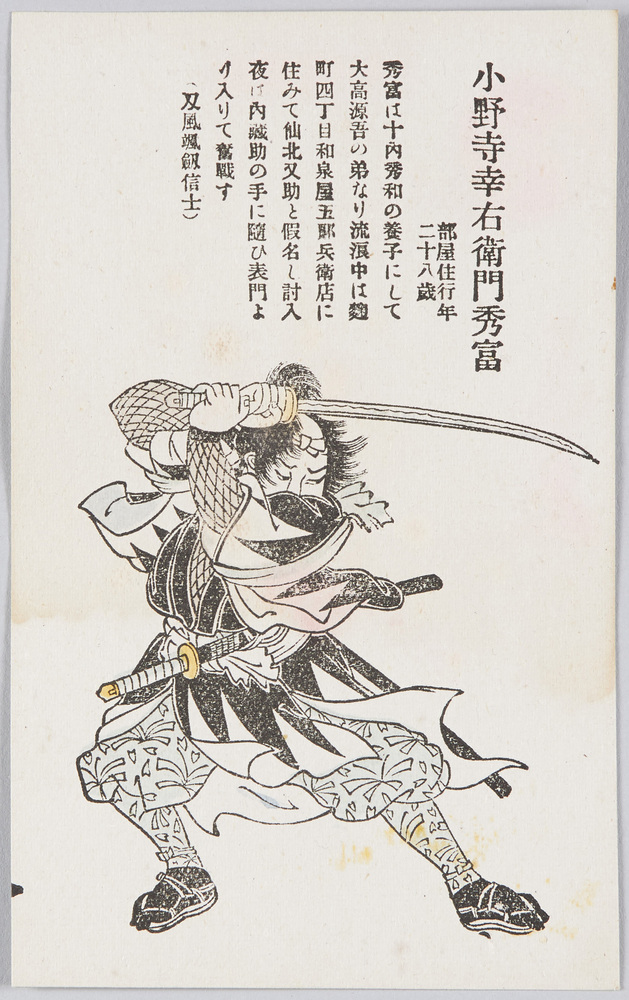 小野寺幸右衛門秀富
部屋住行年
二十八歳
秀富は十内秀和の養子にして
大高源吾の弟なり流浪中は麹
町四丁目和泉屋五郎兵衛店に
住みて仙北又助と假名し討入
夜は内蔵助の手に隨ひ表門よ
り入りて奮戰す
(刄風颯劔信士)